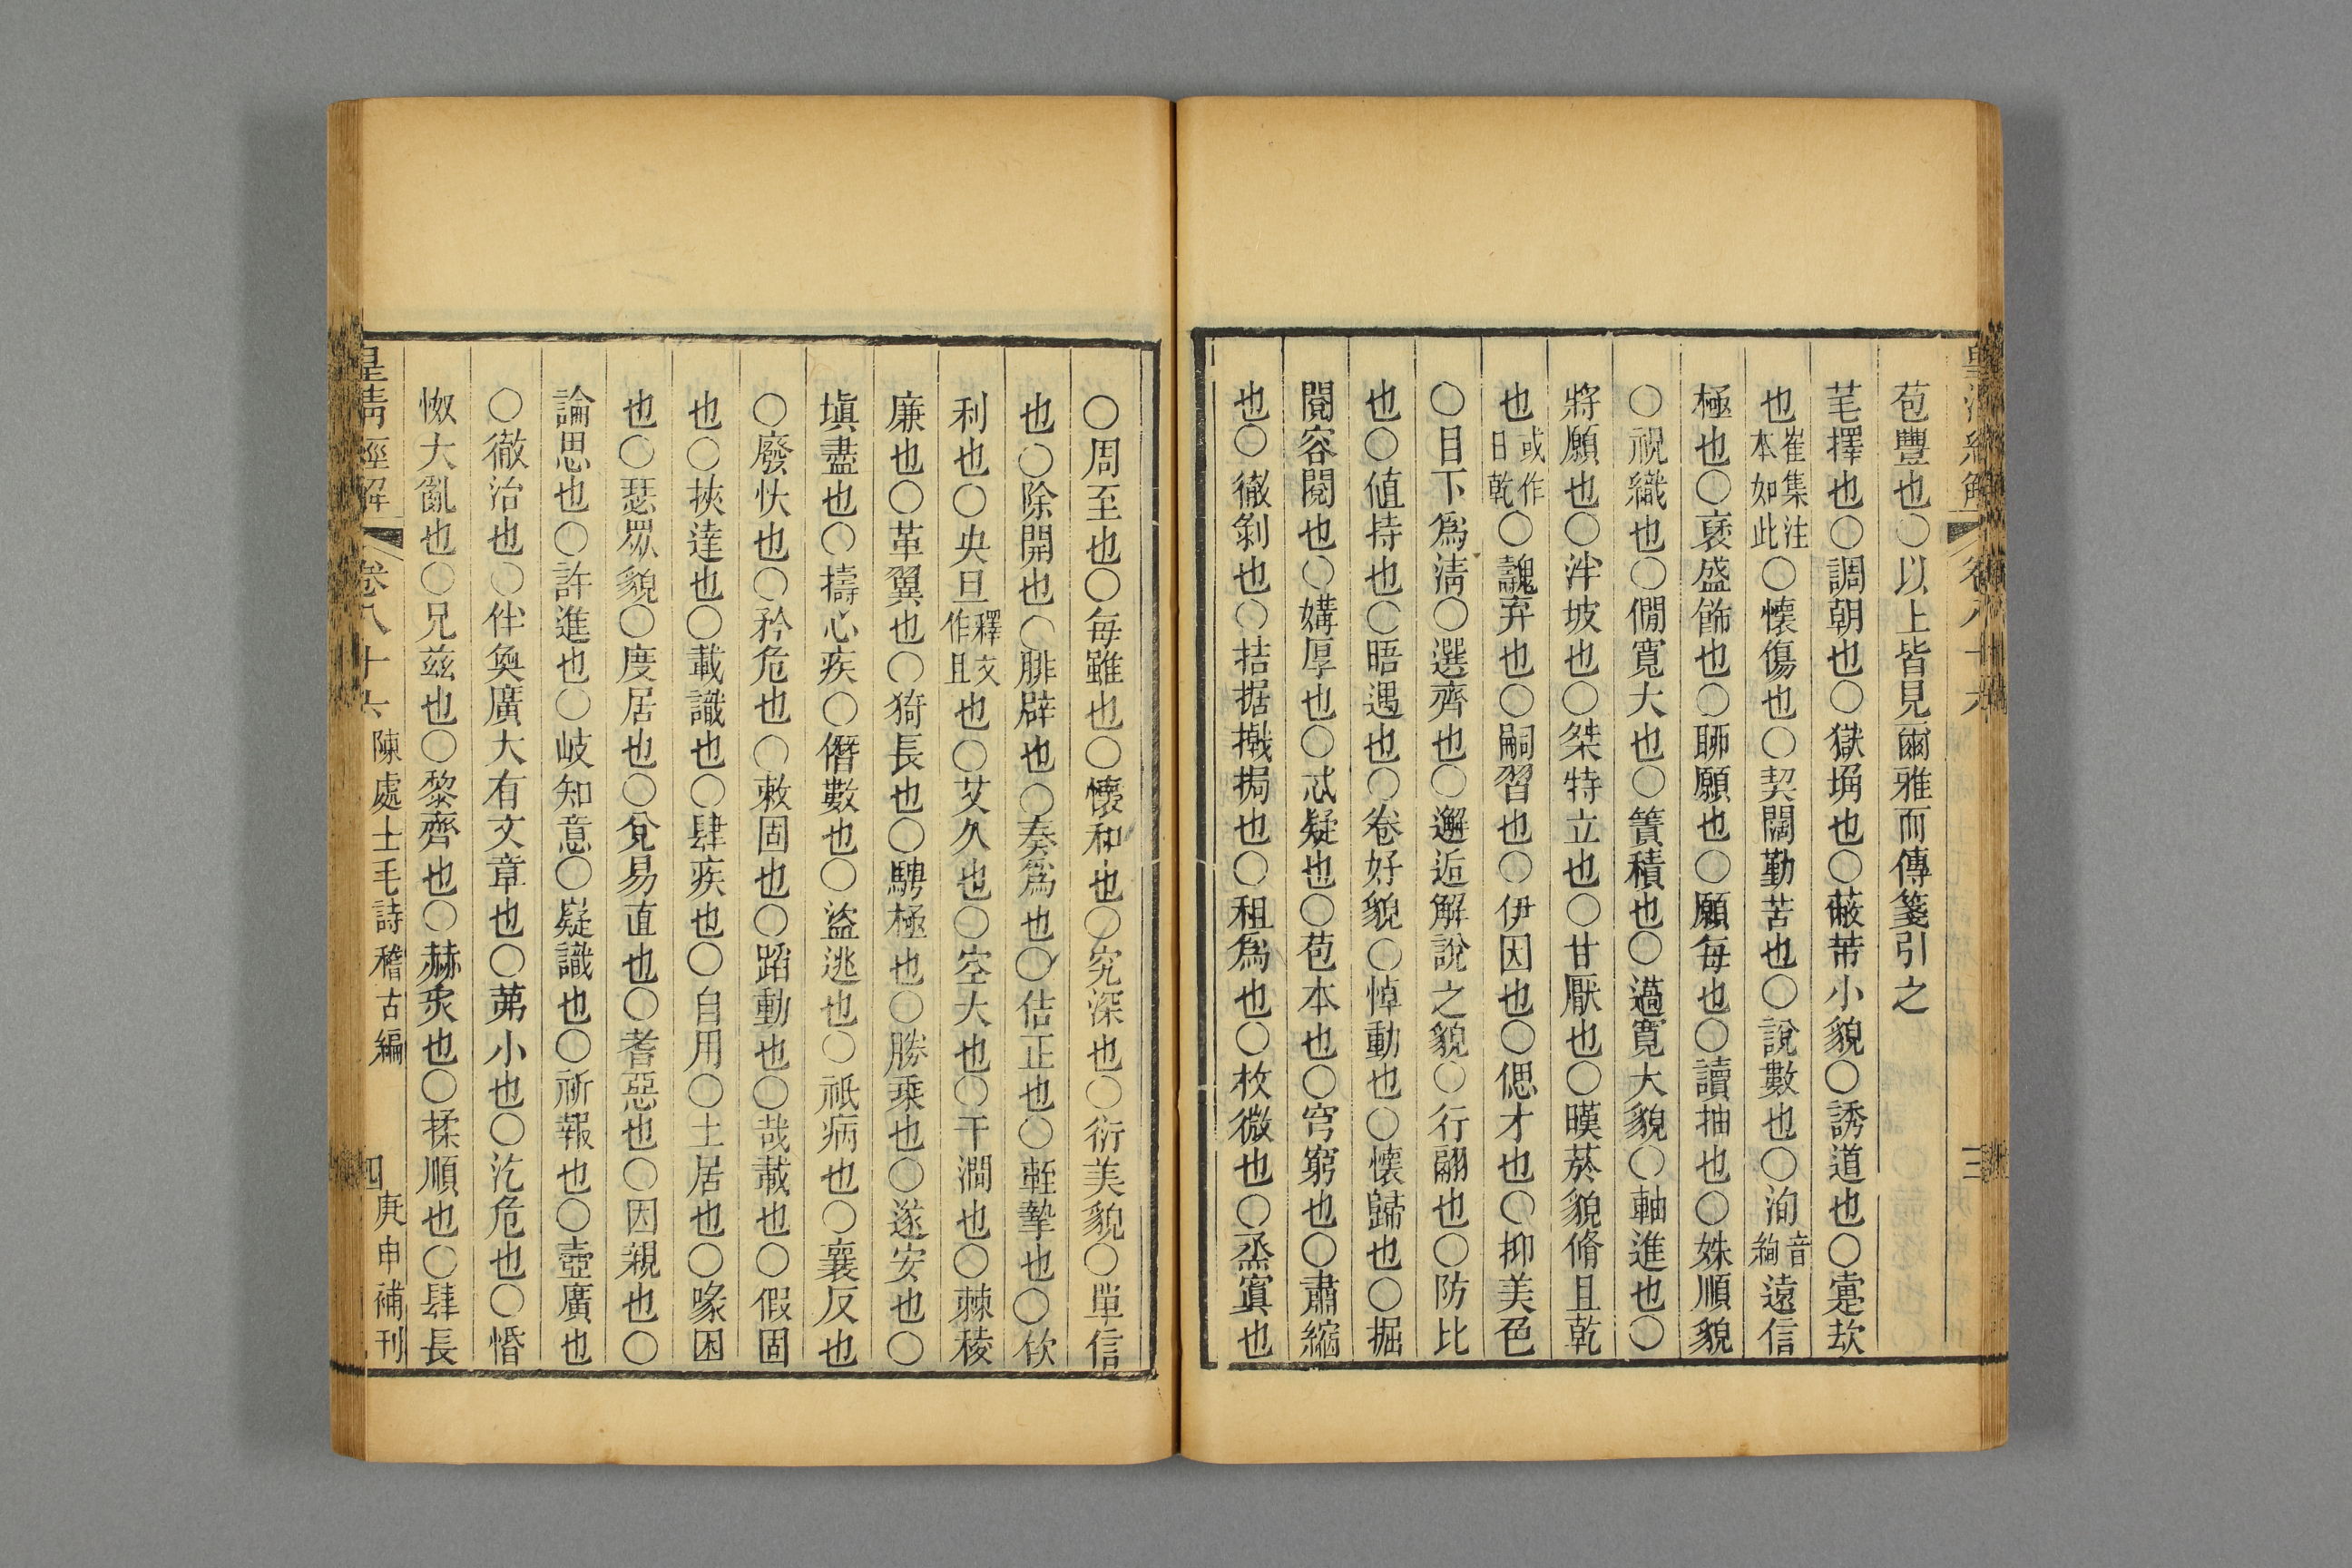 苞豐也○以上皆見爾雅而傳箋引之
芼擇也○調朝也○獄埆也○蔽芾小貌○誘道也○疐㰦
也崔集注本如此○懷傷也○契闊勤苦也○說數也○洵音絢遠信
極也○褎盛飾也○聊願也○願每也○讀抽也○姝順貌
○祝織也○僩寬大也○簀積也○薖寬大貌○軸進也○
將願也○泮坡也○桀特立也○甘厭也○暵菸貌脩且乾
也或作日乾○䰩弃也○嗣習也○伊因也○偲才也○抑美色
○目下爲淸○選齊也○邂逅解說之貌○行翮也○防比
也○値持也○晤遇也○卷好貌○悼動也○懷歸也○掘
閱容閱也○媾厚也○忒疑也○苞本也○穹窮也○肅縮
也○徹剝也○拮据撠挶也○租爲也○枚微也○烝窴也
○周至也○每雖也○懷和也○究深也○衍美貌○單信
也○除開也○腓辟也○奏爲也○佶正也○輊摯也○佽
利也○央旦釋文作且也○艾久也○空大也○干澗也○棘稜
廉也○革翼也○猗長也○騁極也○勝乘也○遂安也○
塡盡也○擣心疾○僭數也○盜逃也○祇病也○襄反也
○廢忕也○矜危也○敕固也○蹈動也○哉載也○假固
也○挾達也○載識也○肆疾也○自用○土居也○喙困
也○瑟眾貌○度居也○兌易直也○耆惡也○因親也○
論思也○許進也○岐知意○嶷識也○祈報也○壼廣也
○徹治也○伴奐廣大有文章也○茀小也○汔危也○惛
怓大亂也○兄茲也○黎齊也○赫炙也○揉順也○肆長
皇淸經解 卷八十六 陳處士毛詩稽古編 四 庚申補刊